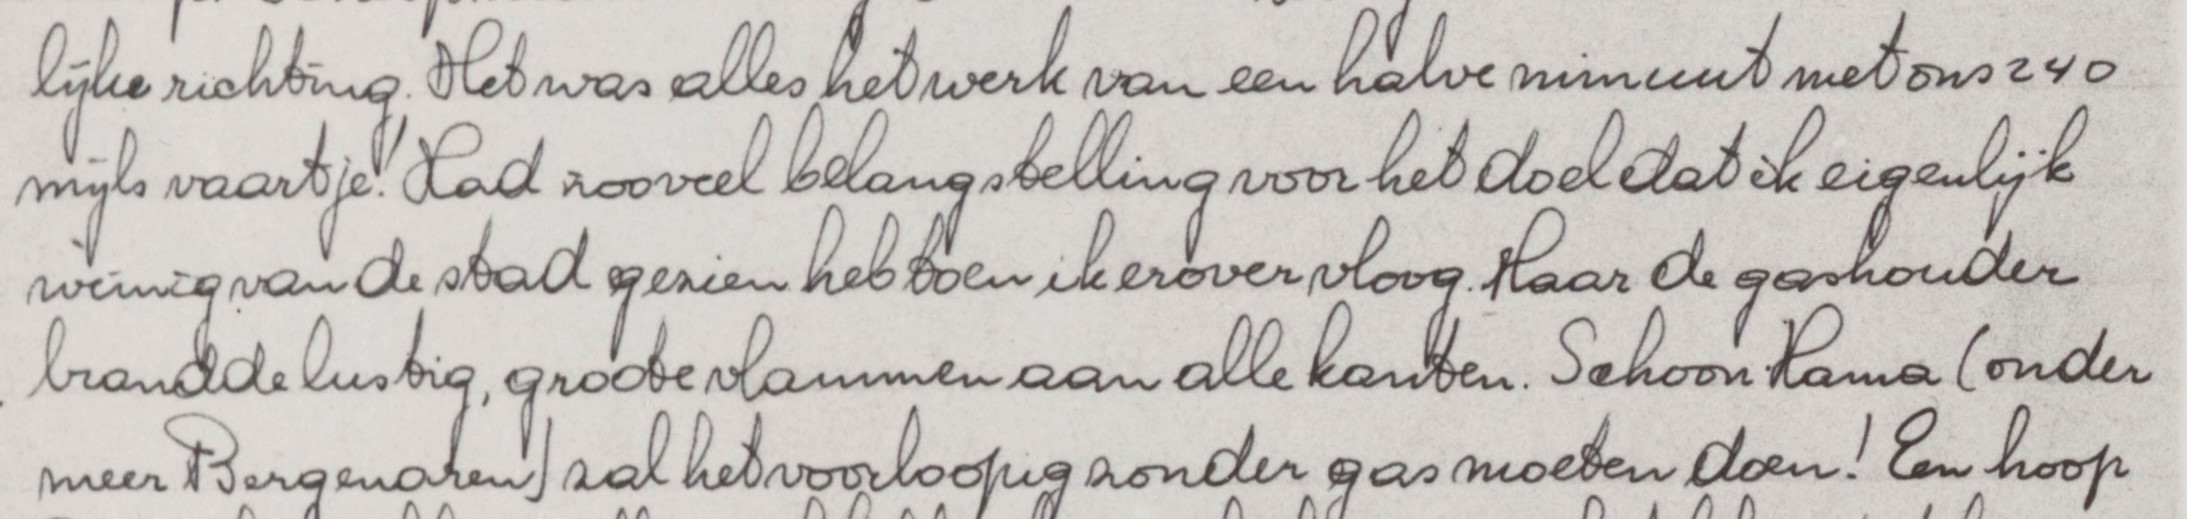 lijke richting. Het was alles het werk van een halve minuut met ons 240
mijls vaartje! Had zooveel belangstelling voor het doel dat ik eigenlijk
weinig van de stad gezien heb toen ik erover vloog. Maar de gashouder
brandde lustig, groote vlammen aan alle kanten. Schoon Mama (onder
meer Bergenaren) zal het voorloopig zonder gas moeten doen! Een hoop